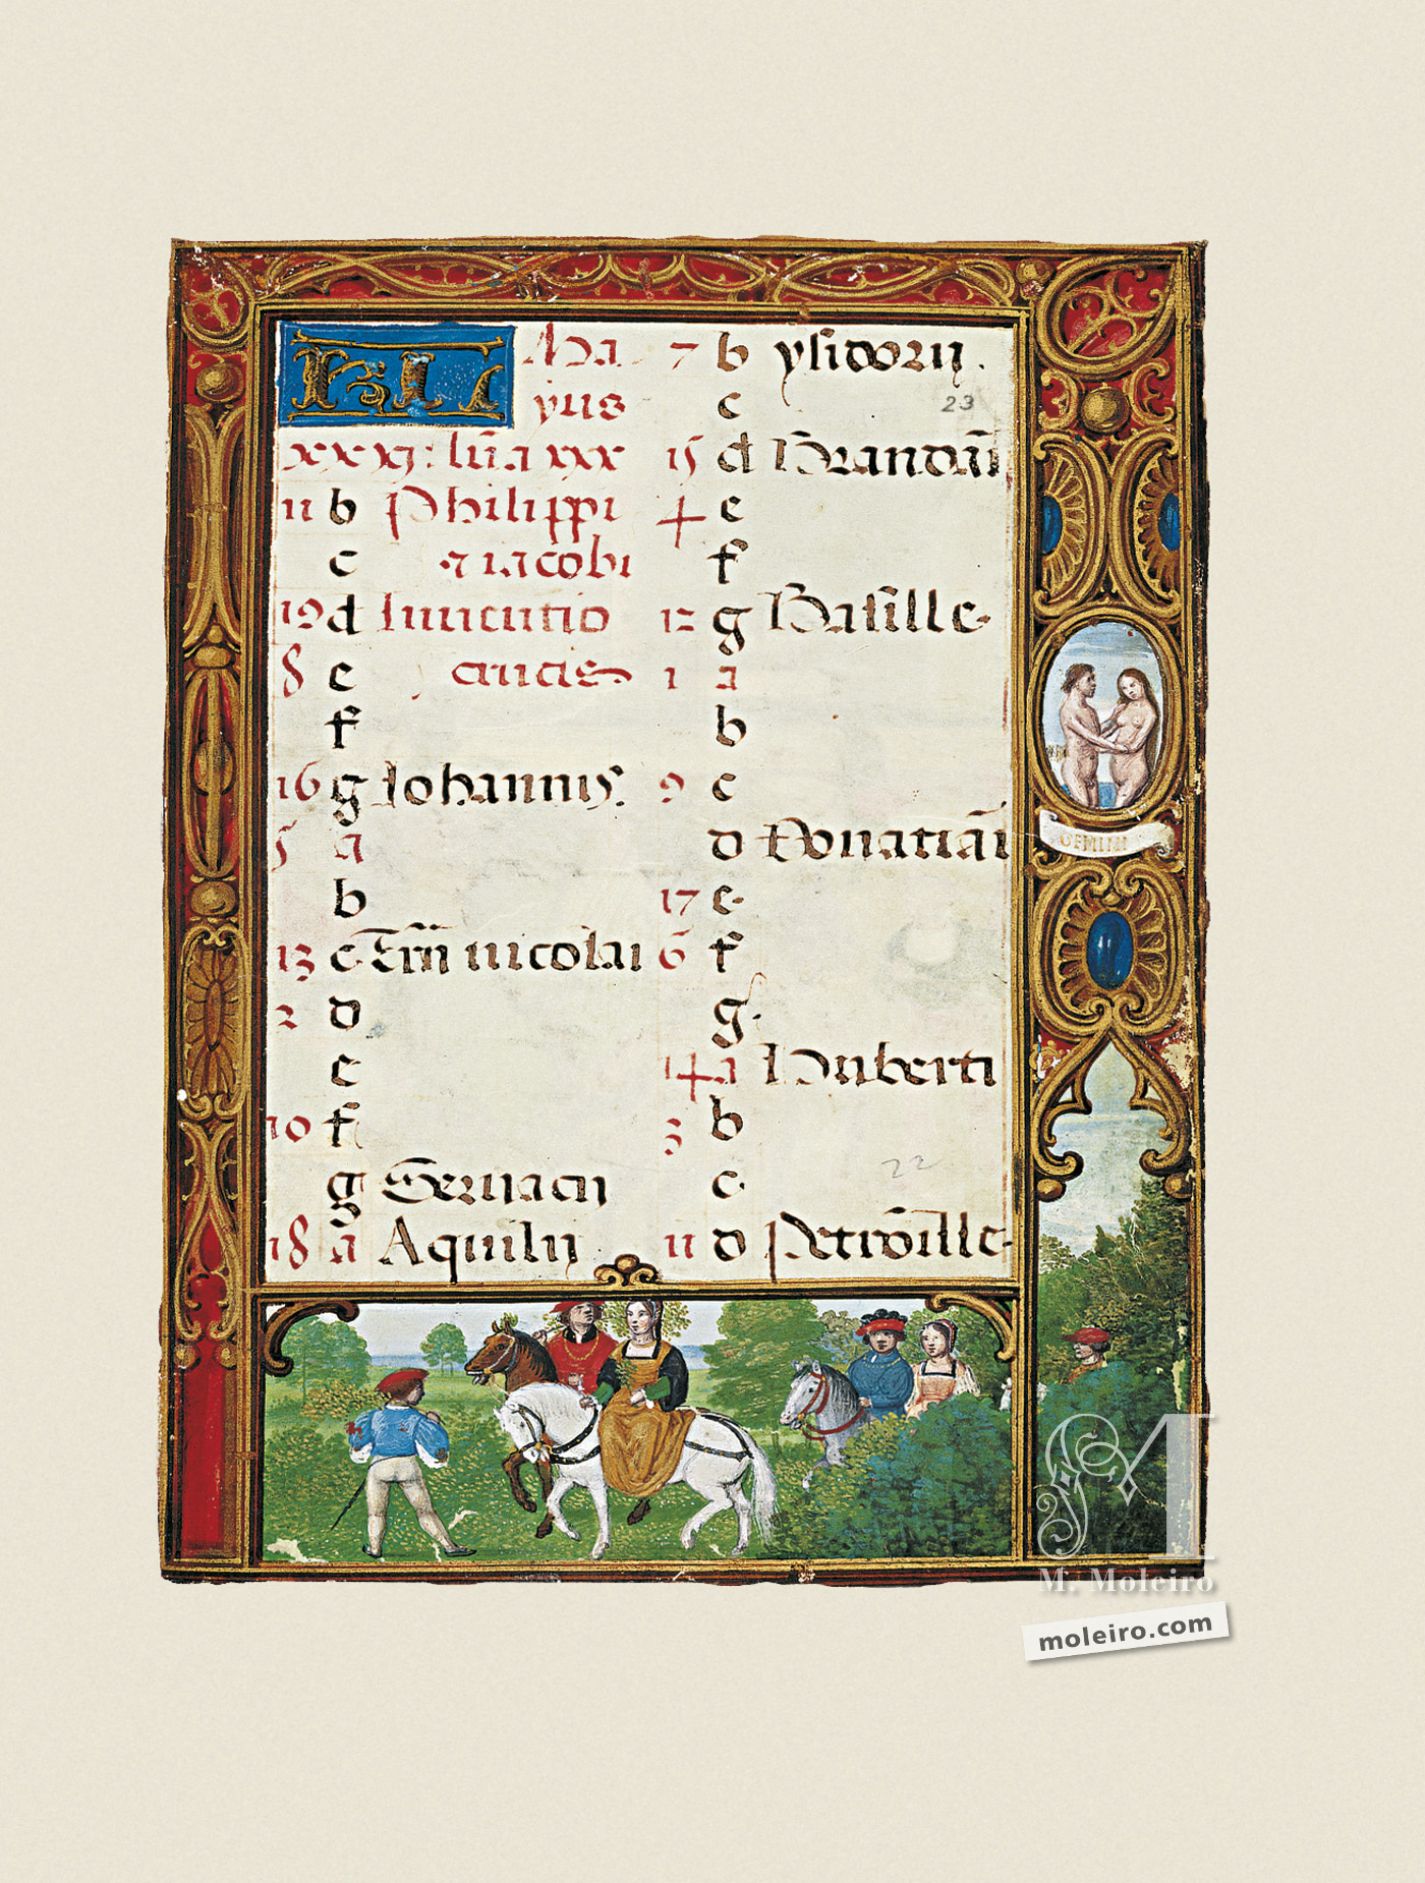 KL Ma
yus
xxxi: lūa xxx
11 b Philippi
c ⁊ iacobi
19 d Inuentio
8 e crucis
f
16 g Iohannis.
5 a
b
13 c Trñ nicolai
2 d
e
10 f
g Seruacij
18 a Aquilij
7 b ysidorij.
c
23
15 d Brandāi
4 e
f
12 g Basille
1 a
b
9 c
d Donatiāi
17 e
6 f
g
14 a Huberti
3 b
22
c
11 d Petrōille
GEMINI
M
M. Moleiro
moleiro.com